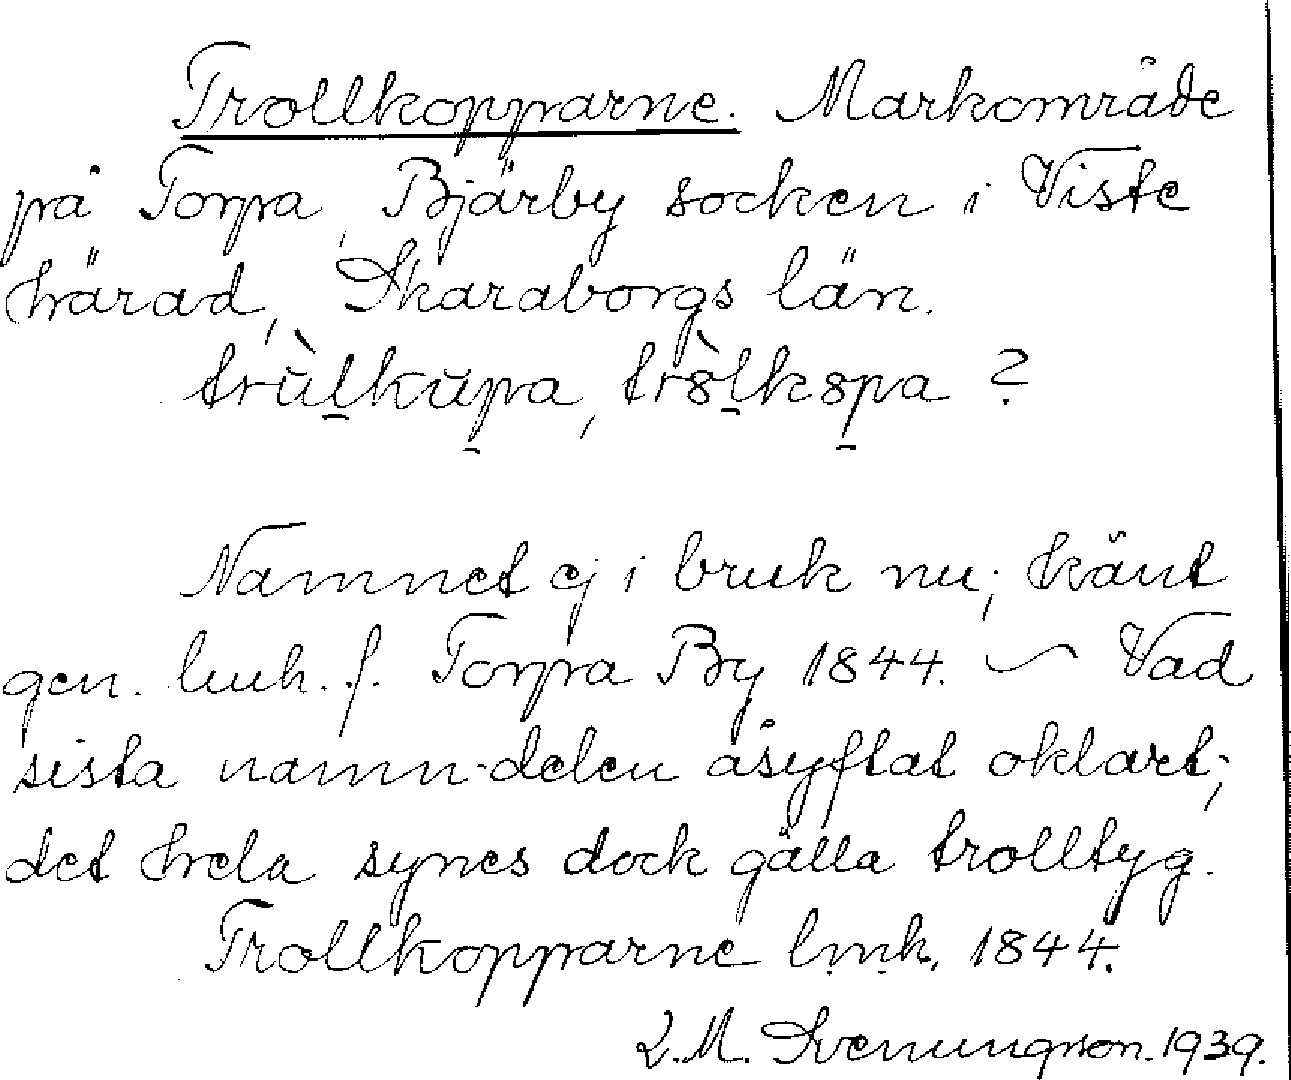 Trollkopparne. Markområde
på Torpa, Bjärby socken i Viste
härad, Skaraborgs län.
trùl̠kŭp̠a, tr8̀l̠k8p̠a ?
Namnet ej i bruk nu; känt
gen. lmk. f. Torpa By 1844. ~ Vad
sista namn-delen åsyftat oklart;
det hela synes dock gälla trolltyg.
Trollkopparne lmk. 1844.
L.M. Svenungson. 1939.